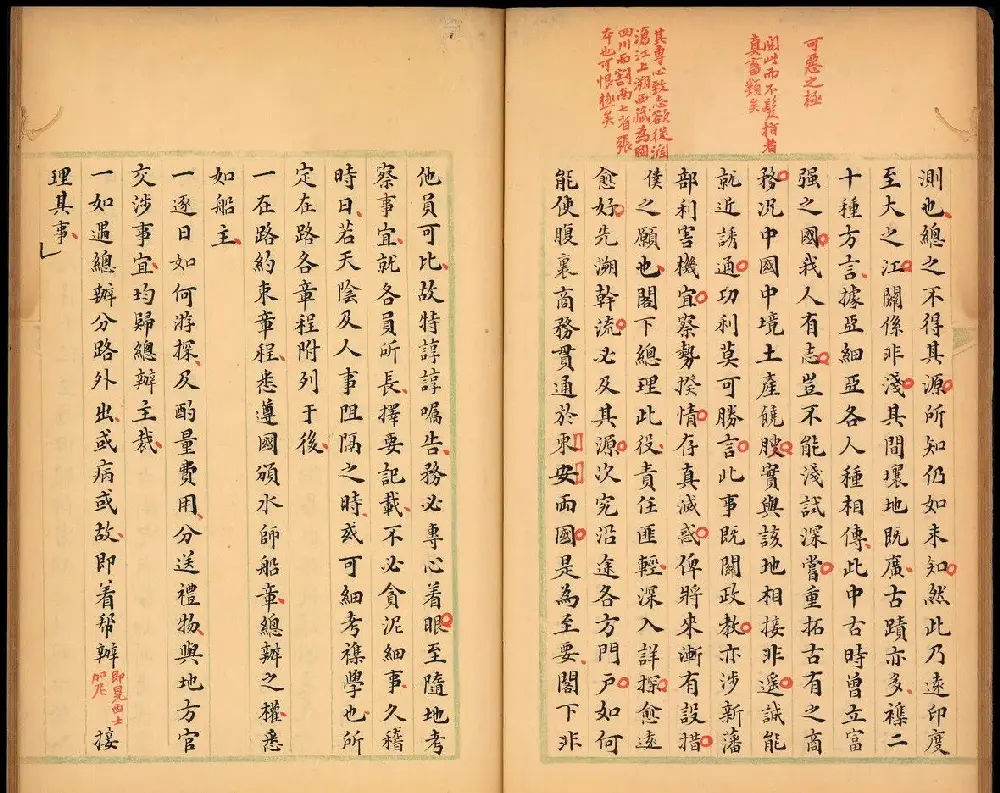 可惡之極
閱此而不髮指者
真畜類矣
其專心致志欲從瀾
滄江上溯西藏為圖
四川而割兩
省張
本也可恨極矣
測也總之不得其源所知仍如未知然此乃遠印度
至大之江關係非淺其間壤地既廣古蹟亦多襍二
十種方言據亞細亞各人種相傳此中古時曾立富
强之國我人有志豈不能淺試深嘗重拓古有之商
務况中國中境土產饒腴實與該地相接非遥誠能
就近誘通功利莫可勝言此事既關政教亦涉新藩
部利害機宜察勢揆情存真滅惑俾將來漸有設措
僕之願也閣下總理此役責任匪輕深入詳探愈遠
愈好先溯幹流必及其源次究沿途各方門戶如何
能使腹裏商務貫通於柬安両國是為至要閣下非
他員可比故特諄諄囑告務必專心着眼至隨地考
察事宜就各員所長擇要記載不必貪泥細事久稽
時日若天陰及人事阻隔之時或可細考襍學也所
定在路各章程附列于後
一在路約束章程悉遵國頒水師船章總辦之權悉
如船主
一逐日如何游探及酌量費用分送禮物與地方官
交涉事宜均歸總辦主裁
一如遇總辦分路外出或病或故即着幇辦即晃西士加尼接
理其事